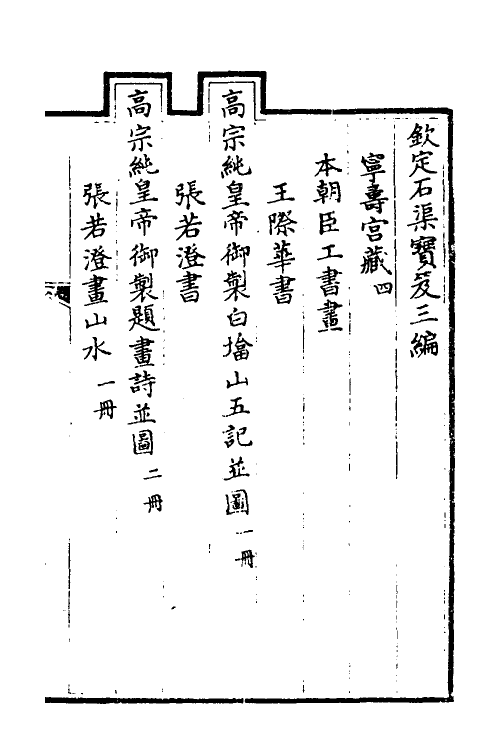 欽定石渠寶笈三編
寧壽宮藏四
本朝臣工書畫
王際華書
高宗純皇帝御製白塔山五記並圖一冊
張若澄書
高宗純皇帝御製題畫詩並圖二冊
張若澄畫山水一冊